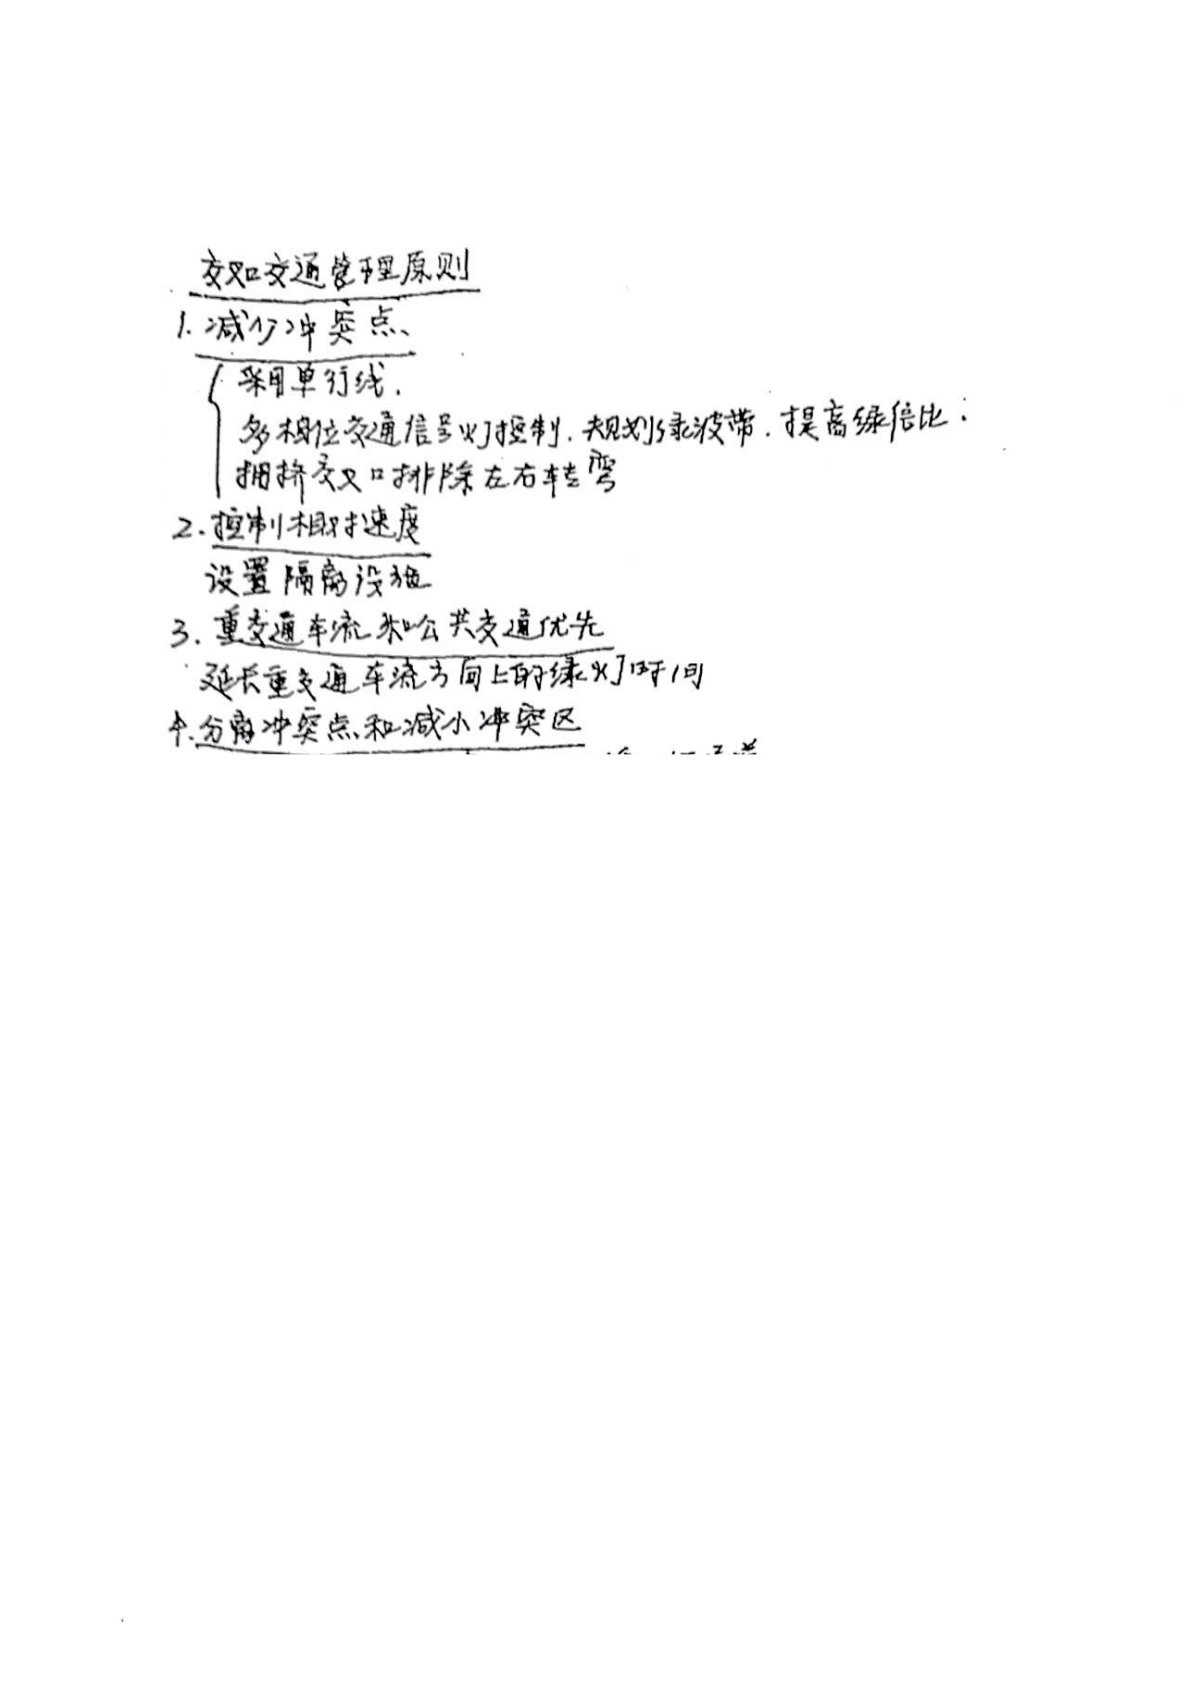 交叉口交通管理原则
1. 减少冲突点
采用单行线.
多相位交通信号灯控制.规划绿波带.提高绿信比.
拥挤交叉口排除左右转弯
2.控制相对速度
设置隔离设施
3.重交通车流和公共交通优先
延长重交通车流方向上的绿灯时间
4.分离冲突点和减小冲突区